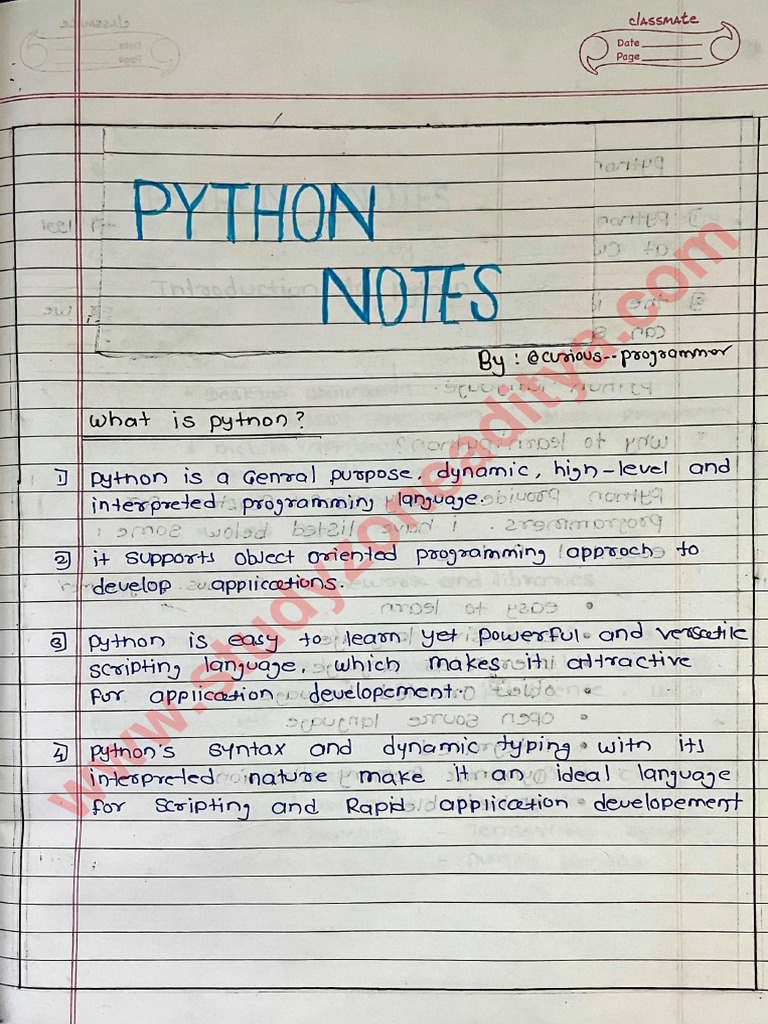 classmate
Date
Page
PYTHON
NOTES
By : @curious--programmer
What is python?
1) python is a Genral purpose, dynamic, high-level and
interpreted programming language.
2) it supports object oriented programming approch to
develop applications.
3) python is easy to learn yet powerful and versatile
scripting language, which makes it attractive
for application developement.
4) python's syntax and dynamic typing with its
interpreted nature make it an ideal language
for scripting and Rapid application developement
www.studyzoneaditya.com